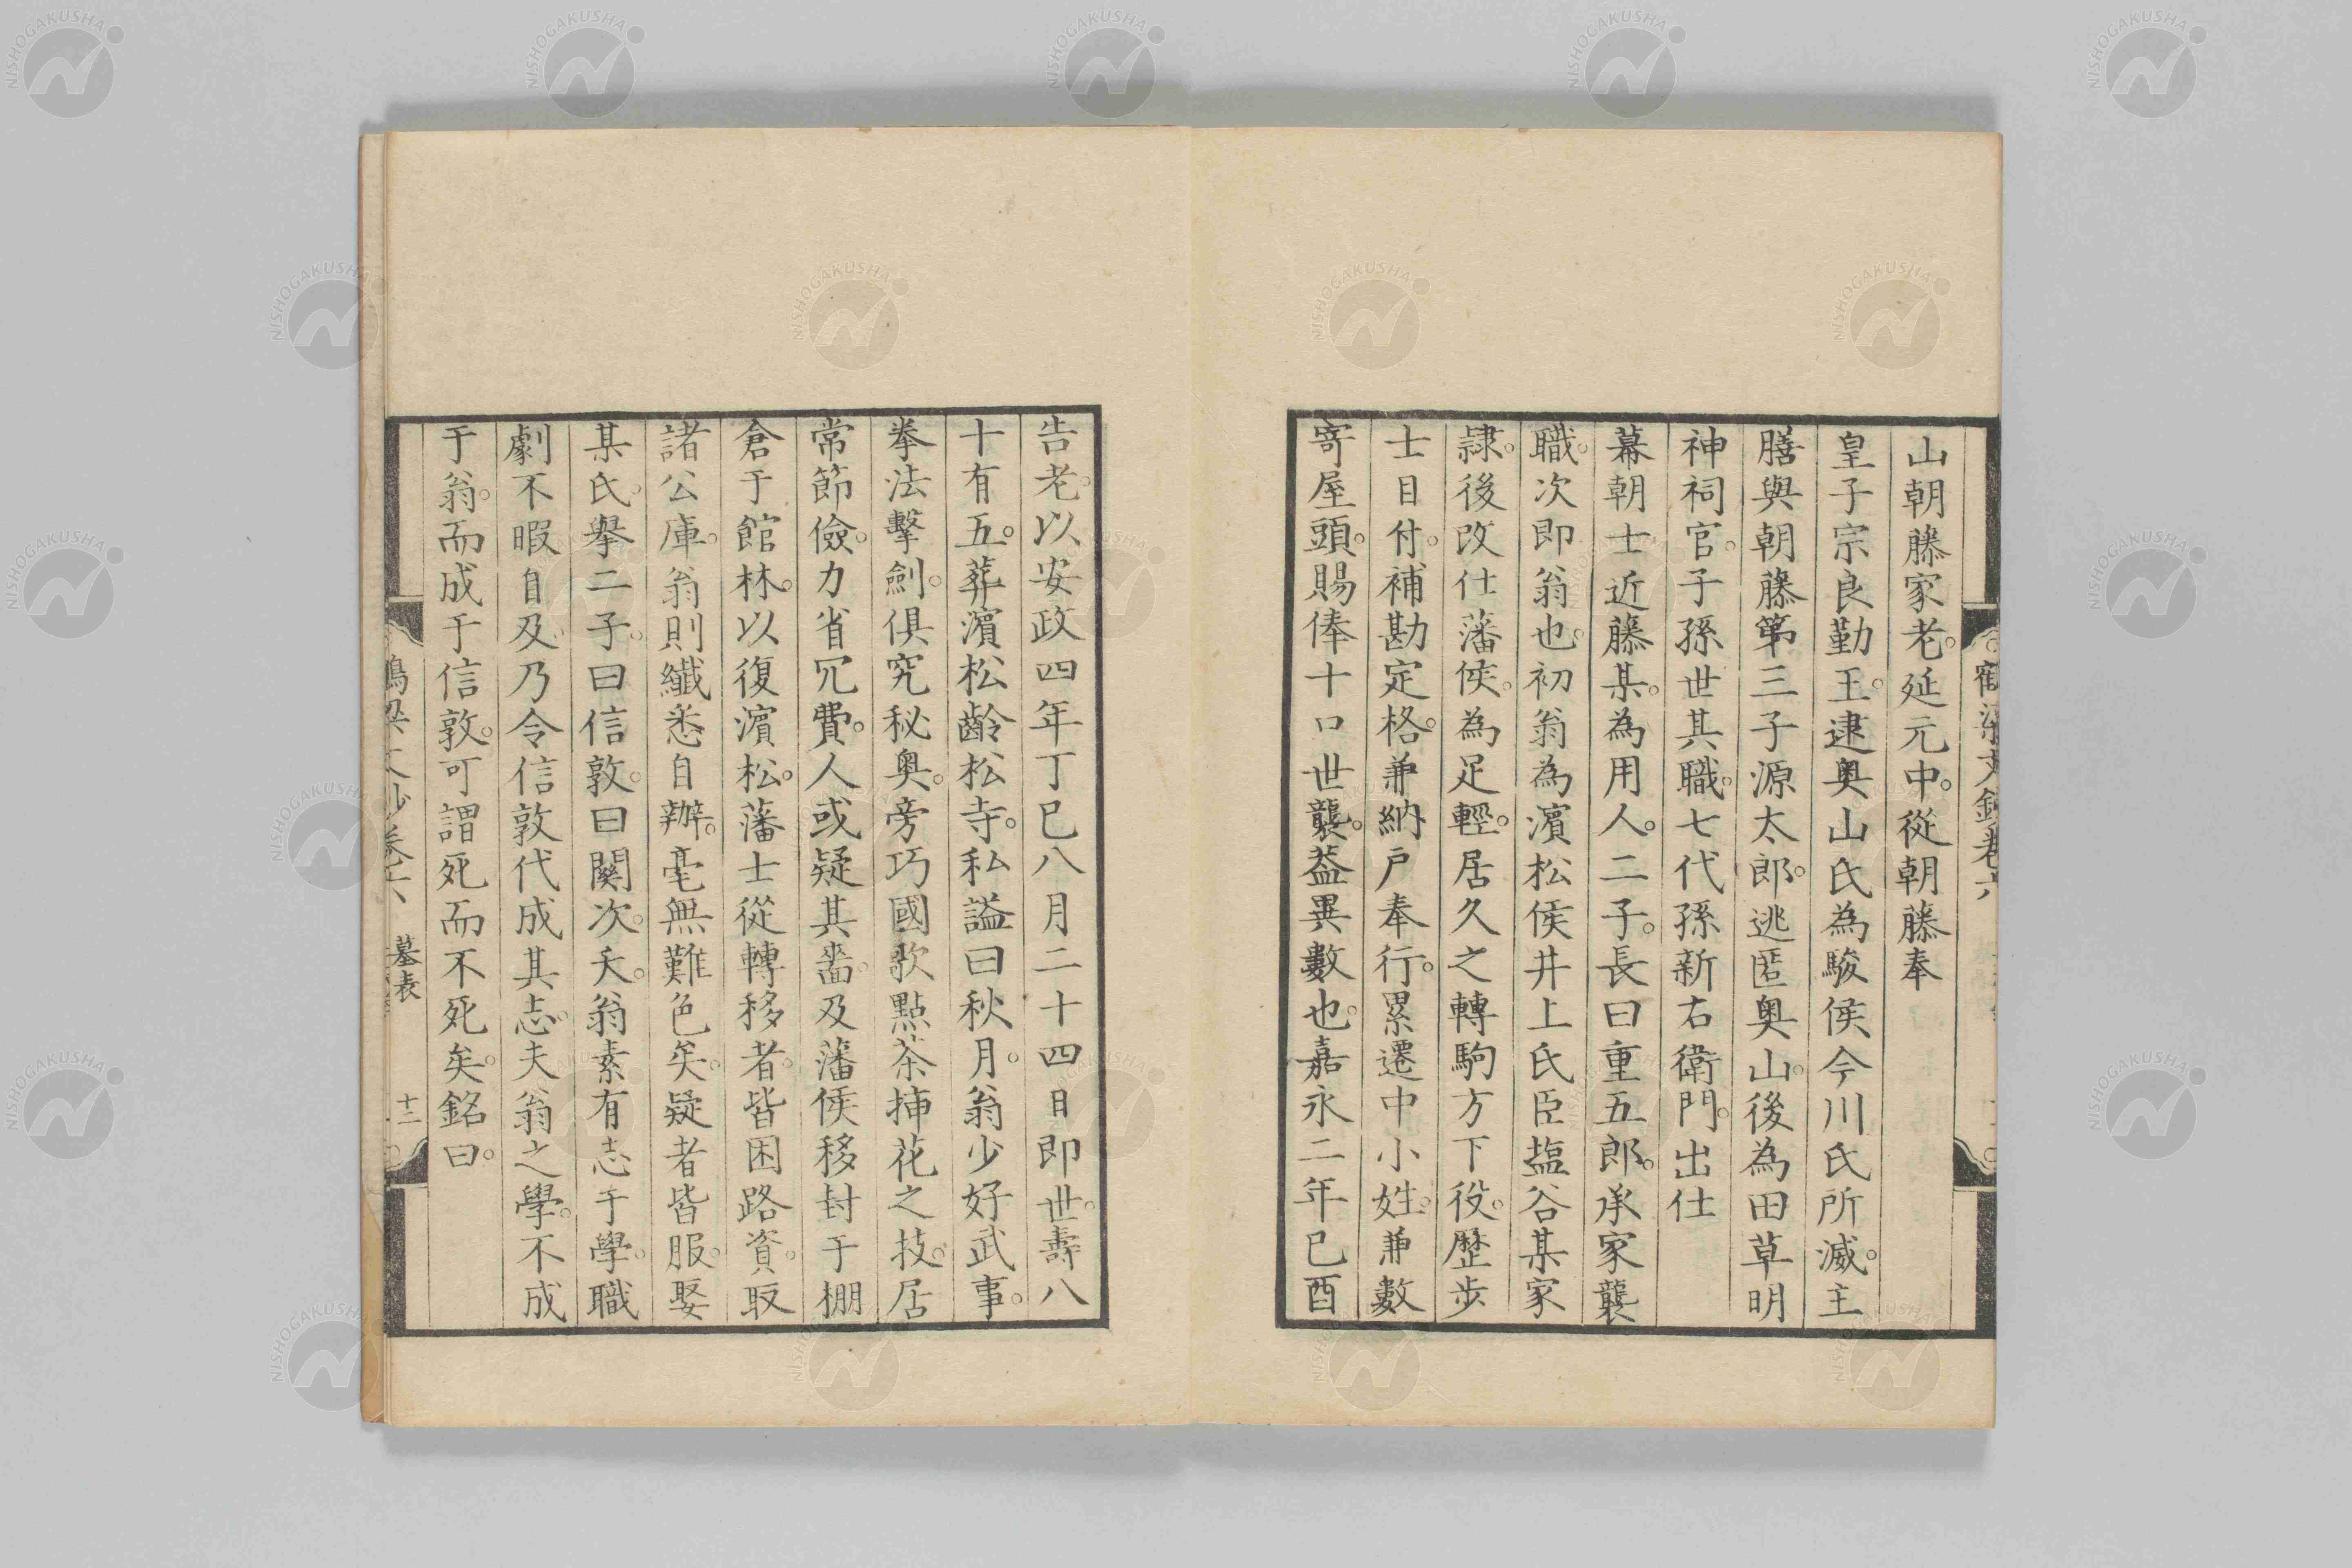 鶴梁文鈔卷六
山朝藤家老。延元中。從朝藤奉
皇子宗良勤王。逮奧山氏為駿侯今川氏所滅。主
膳與朝藤第三子源太郎。逃匿奧山。後為田草明
神祠官。子孫世其職。七代孫新右衛門。出仕
幕朝士近藤某。為用人。二子。長曰重五郎。承家襲
職。次即翁也。初翁為濱松侯井上氏臣塩谷某家
隷。後改仕藩侯。為足輕。居久之轉駒方下役。歷步
士目付。補勘定格。兼納戶奉行。累遷中小姓。兼數
寄屋頭。賜俸十口世襲。益異數也。嘉永二年己酉
告老。以安政四年丁巳八月二十四日即世。壽八
十有五。葬濱松齡松寺。私謚曰秋月。翁少好武事。
拳法擊劍。俱究秘奥。旁巧國歌點茶挿花之技。居
常節儉。力省冗費。人或疑其嗇。及藩侯移封于棚
倉于館林。以復濱松。藩士從轉移者。皆困路資。取
諸公庫。翁則纖悉自辦。毫無難色矣。疑者皆服。娶
某氏。擧二子。曰信敦。曰關次。夭。翁素有志于學。職
劇不暇自及。乃令信敦代成其志。夫翁之學。不成
于翁。而成于信敦。可謂死而不死矣。銘曰。
鶴梁文鈔卷六 墓表 十二
NISHOGAKUSHA